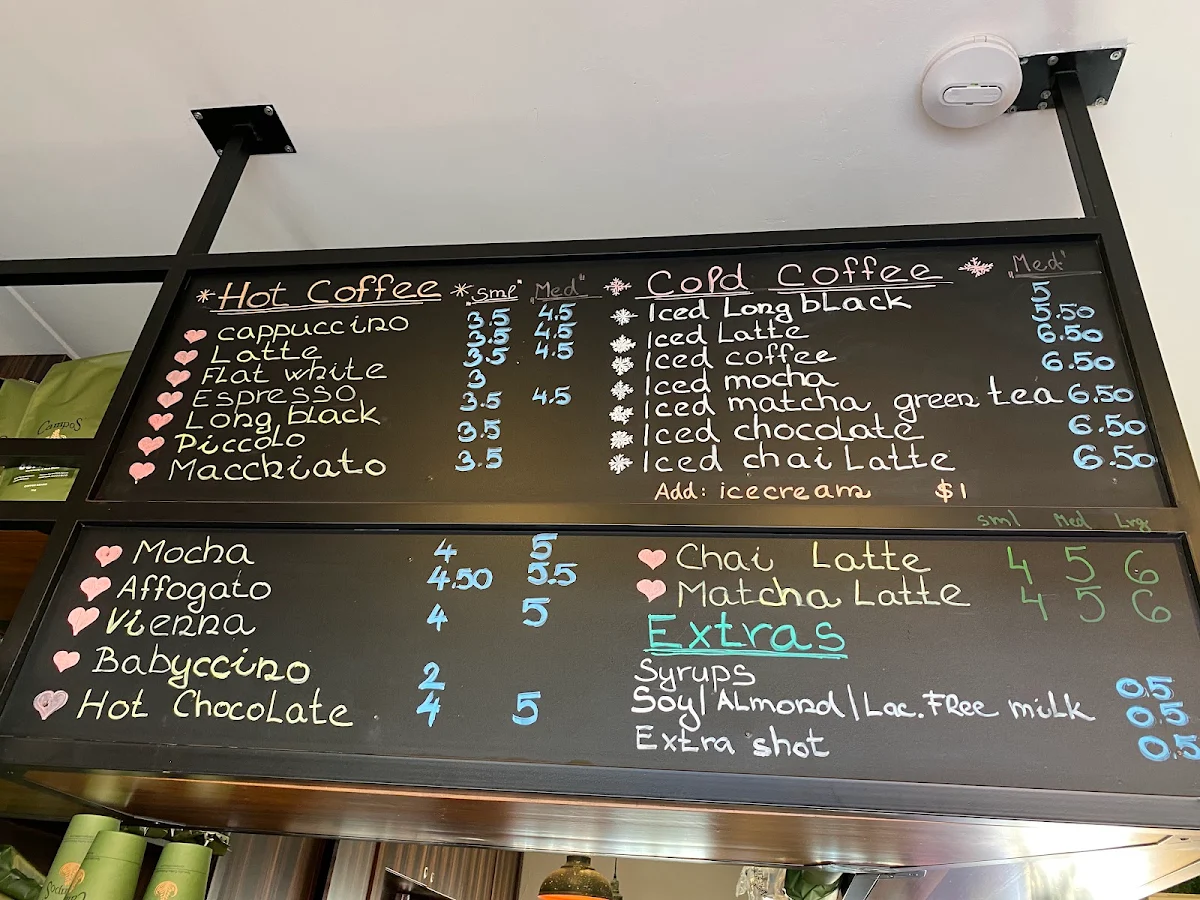 Hot Coffee "sml" "Med"
cappuccino 3.5 4.5
Latte 3.5 4.5
Flat white 3.5 4.5
Espresso 3
Long black 3.5 4.5
Piccolo 3.5
Macchiato 3.5
Cold Coffee "Med"
Iced Long black 5
Iced Latte 5.50
Iced coffee 6.50
Iced mocha 6.50
Iced matcha green tea 6.50
Iced chocolate 6.50
Iced chai Latte 6.50
Add: icecream $1
Mocha 4 5
Affogato 4.50 5.5
Vienna 4 5
Babyccino 2
Hot Chocolate 4 5
sml Med Lrg
Chai Latte 4 5 6
Matcha Latte 4 5 6
Extras
Syrups 0.5
Soy/Almond/Lac.Free milk 0.5
Extra shot 0.5
Campos